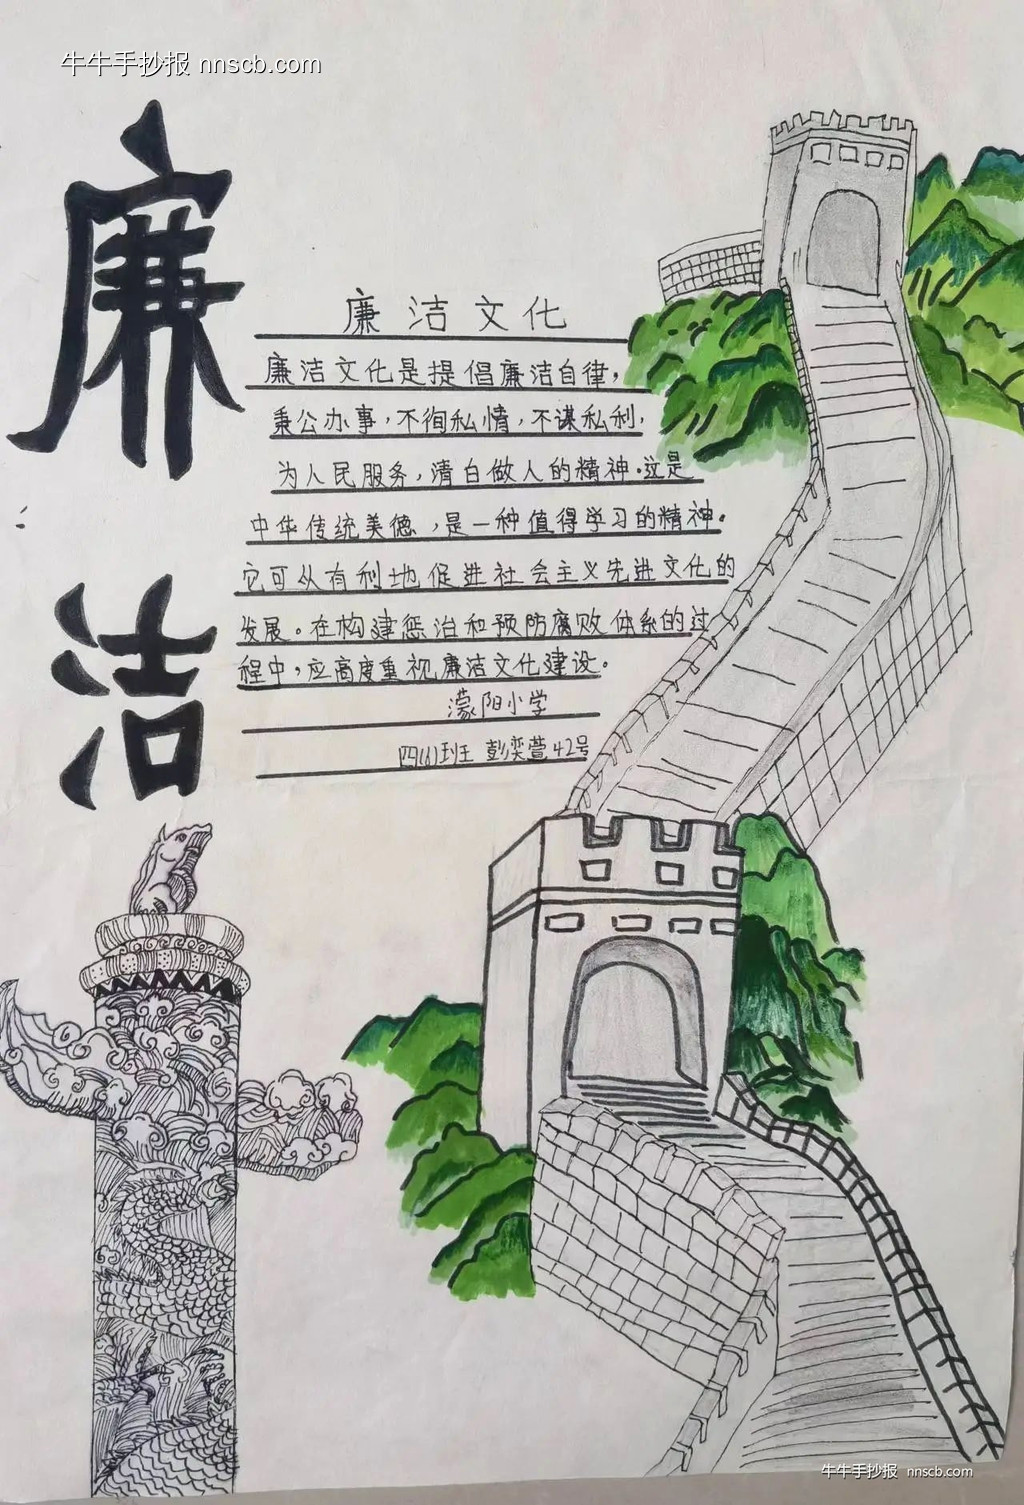 牛牛手抄报 nnscb.com
廉洁
廉洁文化
廉洁文化是提倡廉洁自律，
秉公办事，不徇私情，不谋私利，
为人民服务，清白做人的精神。这是
中华传统美德，是一种值得学习的精神。
它可从有利地促进社会主义先进文化的
发展。在构建惩治和预防腐败体系的过
程中，应高度重视廉洁文化建设。
濛阳小学
四(6)班 彭奕萱 42号
牛牛手抄报 nnscb.com